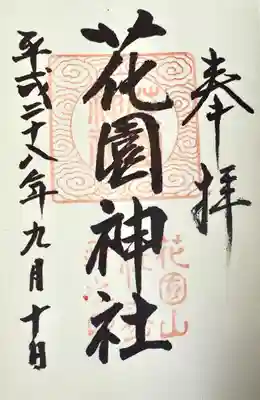 奉拝
花園山
花園神社
平成二十八年九月十日